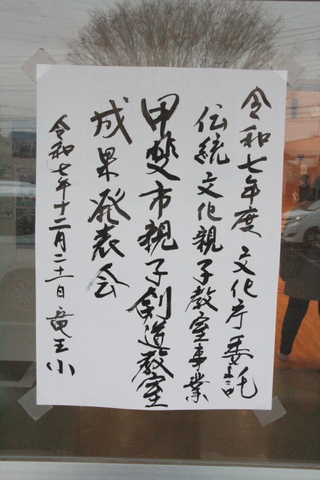 令和七年度 文化庁委託
伝統文化親子教室事業
甲斐市親子剣道教室
成果発表会
令和七年十二月二十一日 竜王小